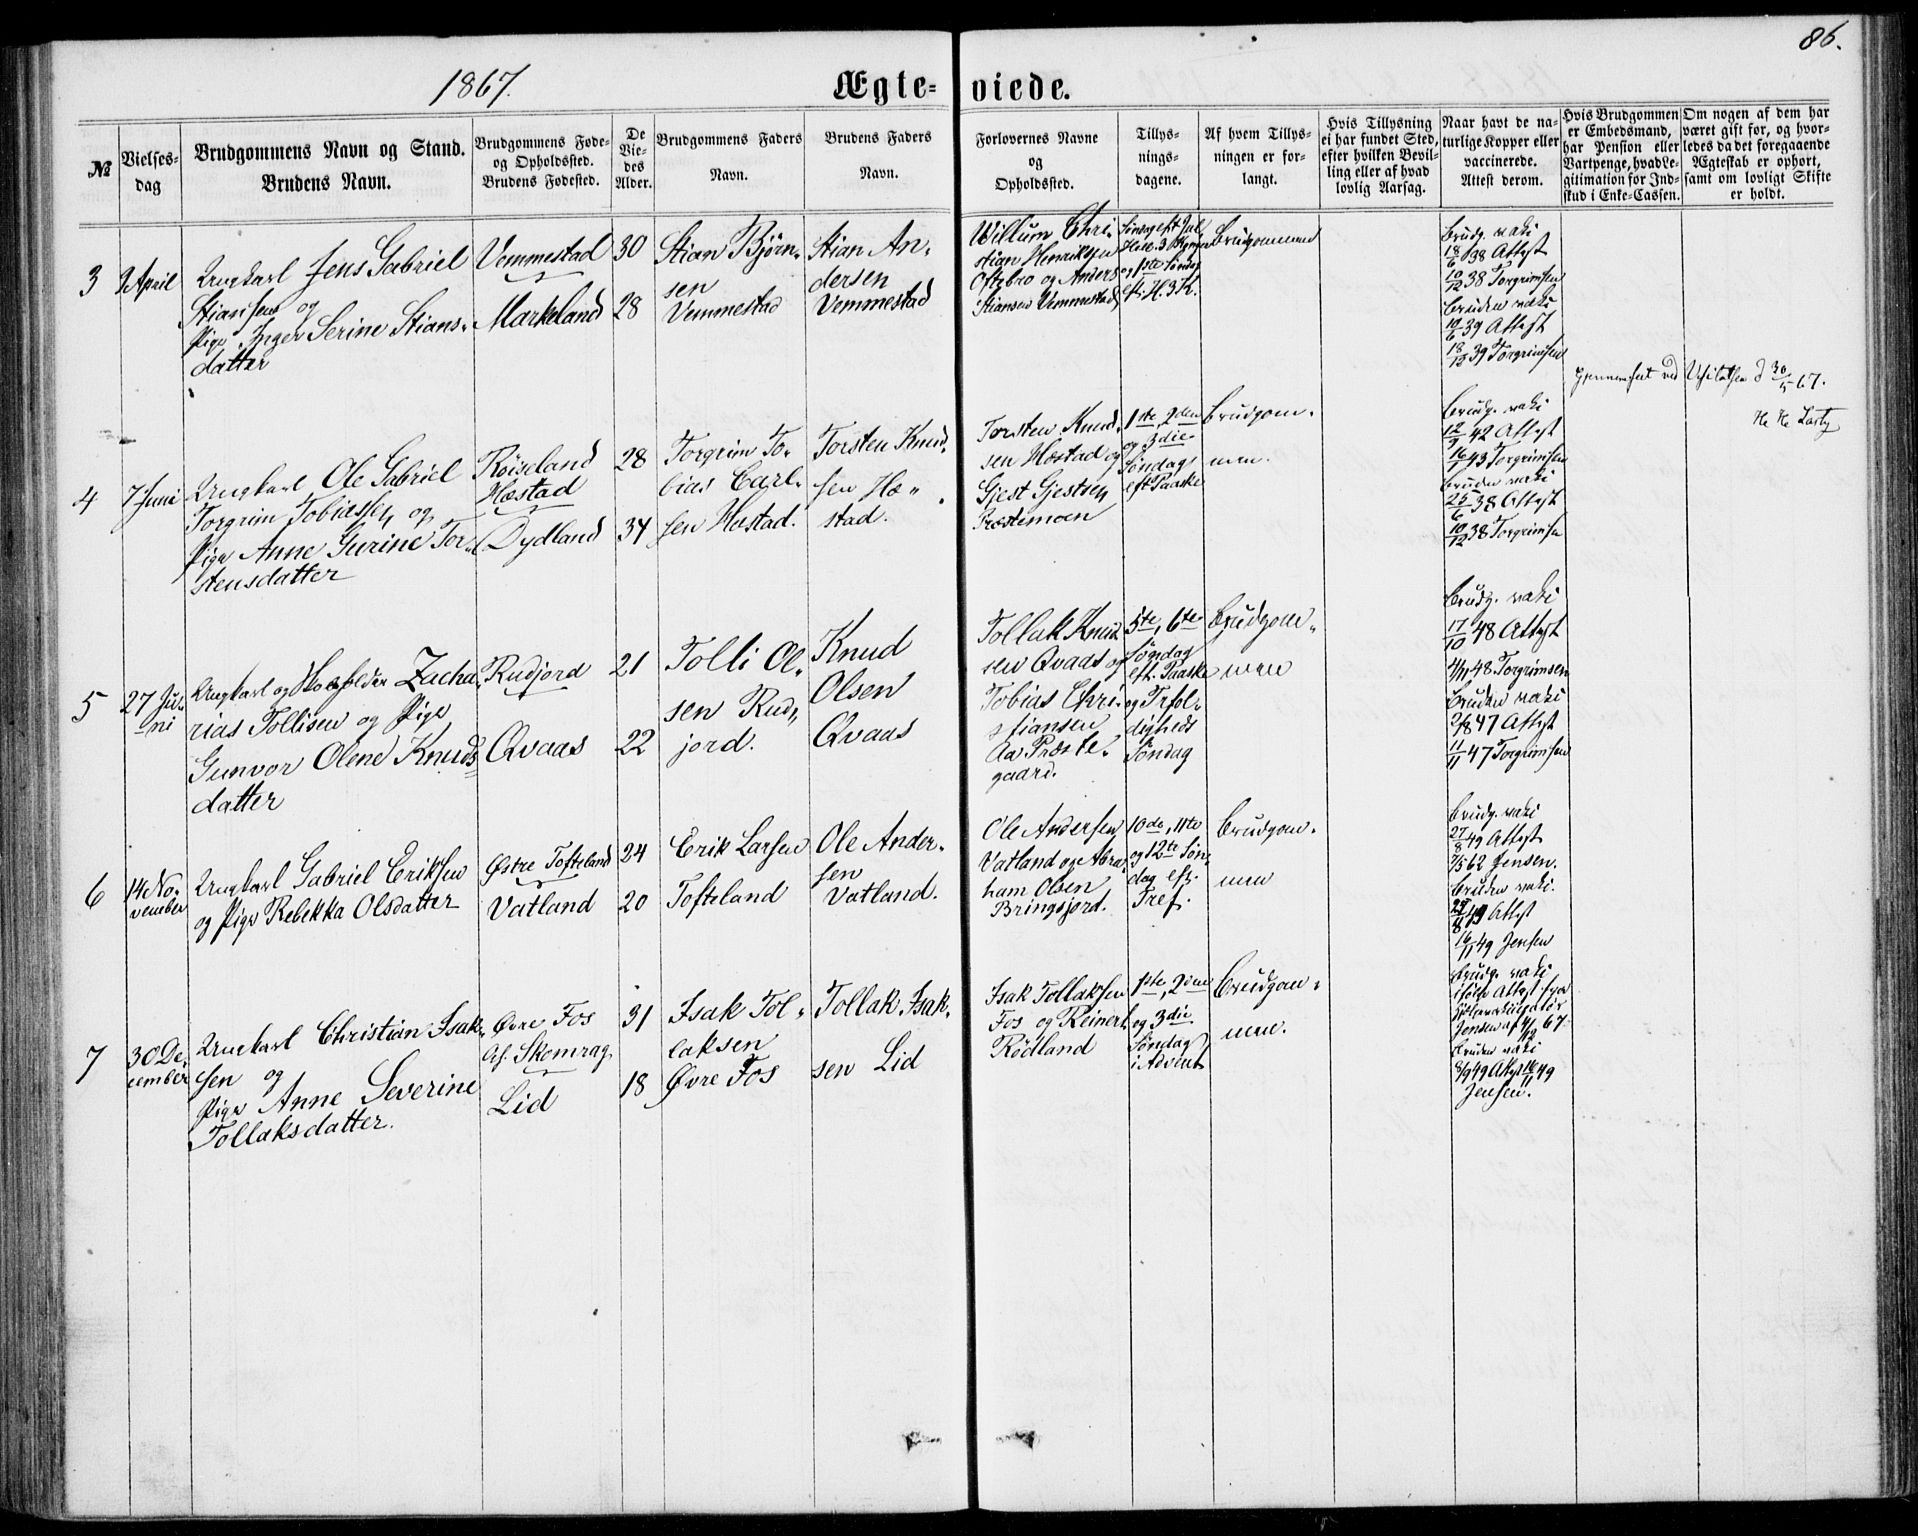 86.
1867.
Ægte-viede.
№
Vielses-
dag
Brudgommens Navn og Stand.
Brudens Navn.
Brudgommens Føde-
og Opholdssted.
Brudens Fødested.
De
Vie-
des
Alder.
Brudgommens Faders
Navn.
Brudens Faders
Navn.
Forlovernes Navne
og
Opholdssted.
Tillys-
nings-
dagene.
Af hvem Tillys-
ningen er for-
langt.
Hvis Tillysning
ei har fundet Sted,
efter hvilken Bevil-
ling eller af hvad
lovlig Aarsag.
Naar havt de na-
turlige Kopper eller
vaccinerede.
Attest derom.
Hvis Brudgommen
er Embedsmand,
har Pension eller
Vartpenge, hvad Le-
gitimation for Ind-
skud i Enke-Cassen.
Om nogen af dem har
været gift før, og hvor-
ledes da det foregaaende
Ægteskab er ophørt,
samt om lovligt Skifte
er holdt.
3
April
Ungkarl Jens Gabriel
Stiansen og
Pige Inger Serine Stians-
datter
Vemmestad
Markeland
30
28
Stian Bjørn-
sen
Vemmestad
Stian An-
dersen
Vemmestad
Willum Chri-
stian Henriksen
Oftebro og Anders
Stiansen Vemmestad
og 1ste Søndag
eft. H. 3 K.
Brudgommen
Brudg. vaki
18/6 38 Attest
10/12 38 Torgrimsen
Bruden vaki
10/6 39 Attest
18/12 39 Torgrimsen
30/5 67.
4
7 Juni
Ungkarl Ole Gabriel
Torgrim Tobiassen og
Pige Anne Gurine Tor-
stensdatter
Røiseland
Hæstad
Dydland
28
34
Torgrim To-
bias Carl-
sen Hæstad.
Torsten Knud-
sen Hæ-
stad.
Torsten Knud-
sen Hæstad og
Gjest Gjestsen
Præstemoen
1ste, 2den
og 3die
Søndag
eft Paaske
Brudgom-
men.
Brudg. vaki
12/9 42 Attest
16/1 43 Torgrimsen
Bruden vaki
25/6 38 Attest
10/12 38 Torgrimsen
5
27 Ju-
ni
Ungkarl og Zacha-
rias Tollisen og Pige
Gunvor Olene Knuds-
datter
Rudjord
Qvaas
21
22
Tolli Ol-
sen Rud-
jord.
Knud
Olsen
Qvaas
Tollak Knud-
sen Qvaas og
Tobias Chri-
stiansen
Aa Præste-
gaard.
5te, 6te
Søndag
eft. Paaske
og Trefol-
digheds
Søndag
Brudgom-
men
Brudg. vaki
17/10 48 Attest
4/11 48 Torgrimsen
Bruden vaki
2/8 47 Attest
11/11 47 Torgrimsen
6
14 No-
vember
Ungkarl Gabriel Eriksen
og Pige Rebekka Olsdatter
Østre Tofteland
Vatland
24
20
Erik Larsen
Tofteland
Ole Ander-
sen
Vatland.
Ole Andersen
Vatland og Abra-
ham Olsen
Bringsjord.
10de, 11te
og 12te Søn-
dag eft.
Tref.
Brudgom-
men
Brudg. vaki
27/8 49 Attest
7/5 62 Jensen.
Bruden vaki.
49 Attest
16/11 49 Jensen
7
30 De-
cember
Ungkarl Christian Isak-
sen og
Pige Anne Severine
Tollaksdatter.
Øvre Fos
Skomrag
Lid
31
18
Isak Tol-
laksen
Øvre Fos
Tollak Isak-
sen Lid
Isak Tollaksen
Fos og Reinert
Rødland
1ste, 2den
og 3die
Søndag
i Advent
Brudgom-
men.
Brudg. vaki
ifølge Attest fra
Jensen af 67
Bruden vaki
49 Attest 49
Jensen.